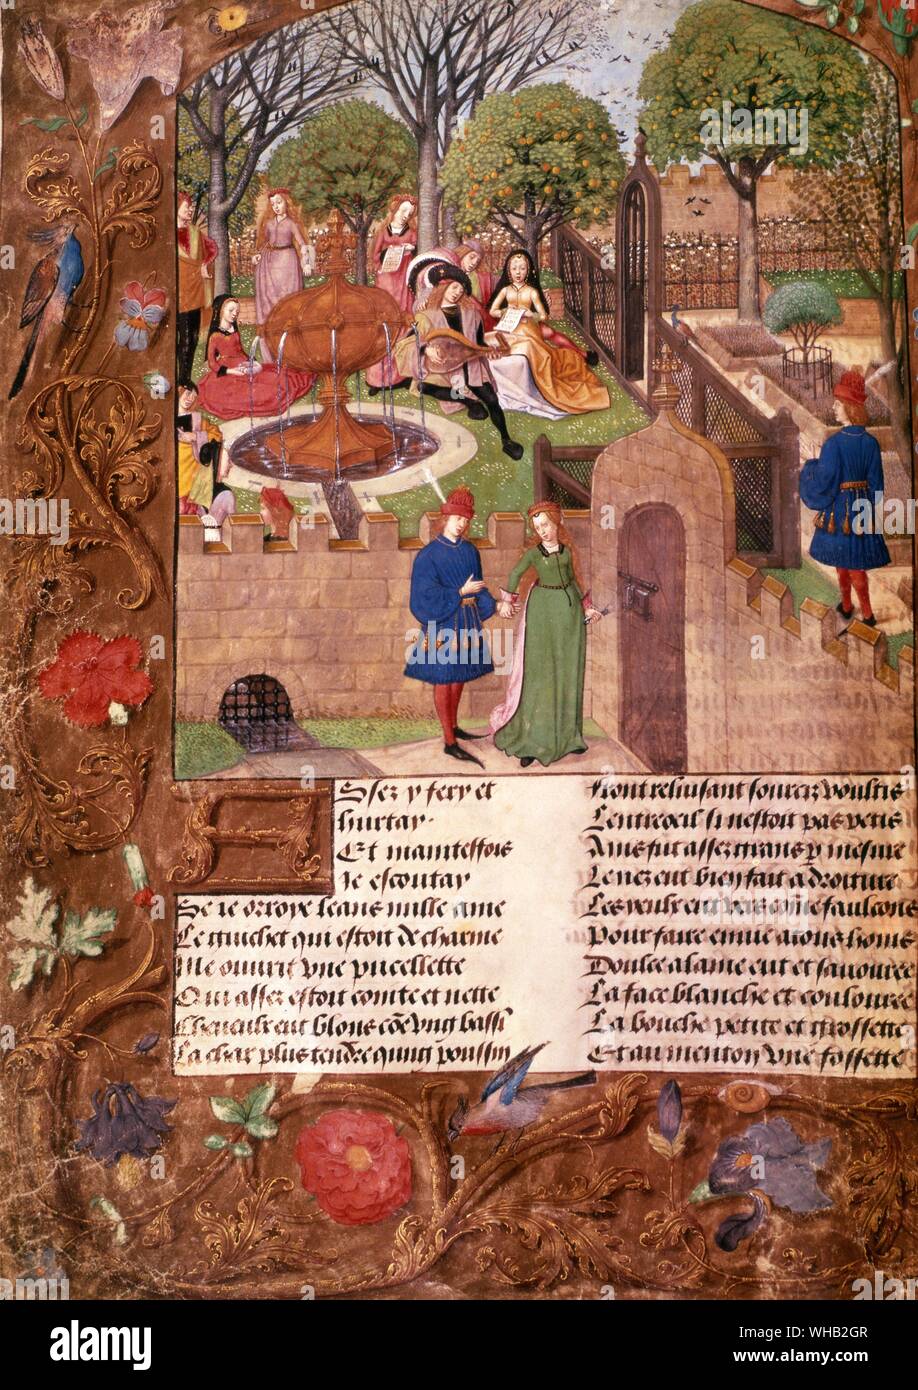 Assez y fery et
hurtay.
Et maintesfois
Je escoutay
Se ie orroye leans nulle ame
Le guichet qui estoit de charme
Me ouurit vne pucellette
Qui assez estoit cointe et nette
Cheueulx eut blons cõe vng bassĩ
La char plus tendre qung poussin
Front reluisant sourcilz voultis
Lentreoeil si nestoit pas petis
Ains fut assez grans p mesure
Le nez eut bien fait a droiture
Les yeulx eut vers come faulcons
Pour faire enuie a ces homs
Doulce alaine eut et sauouree
La face blanche et coulouree
La bouche petite et grossette
Et au menton vne fossette
alamy
Image ID: WHB2GR
www.alamy.com